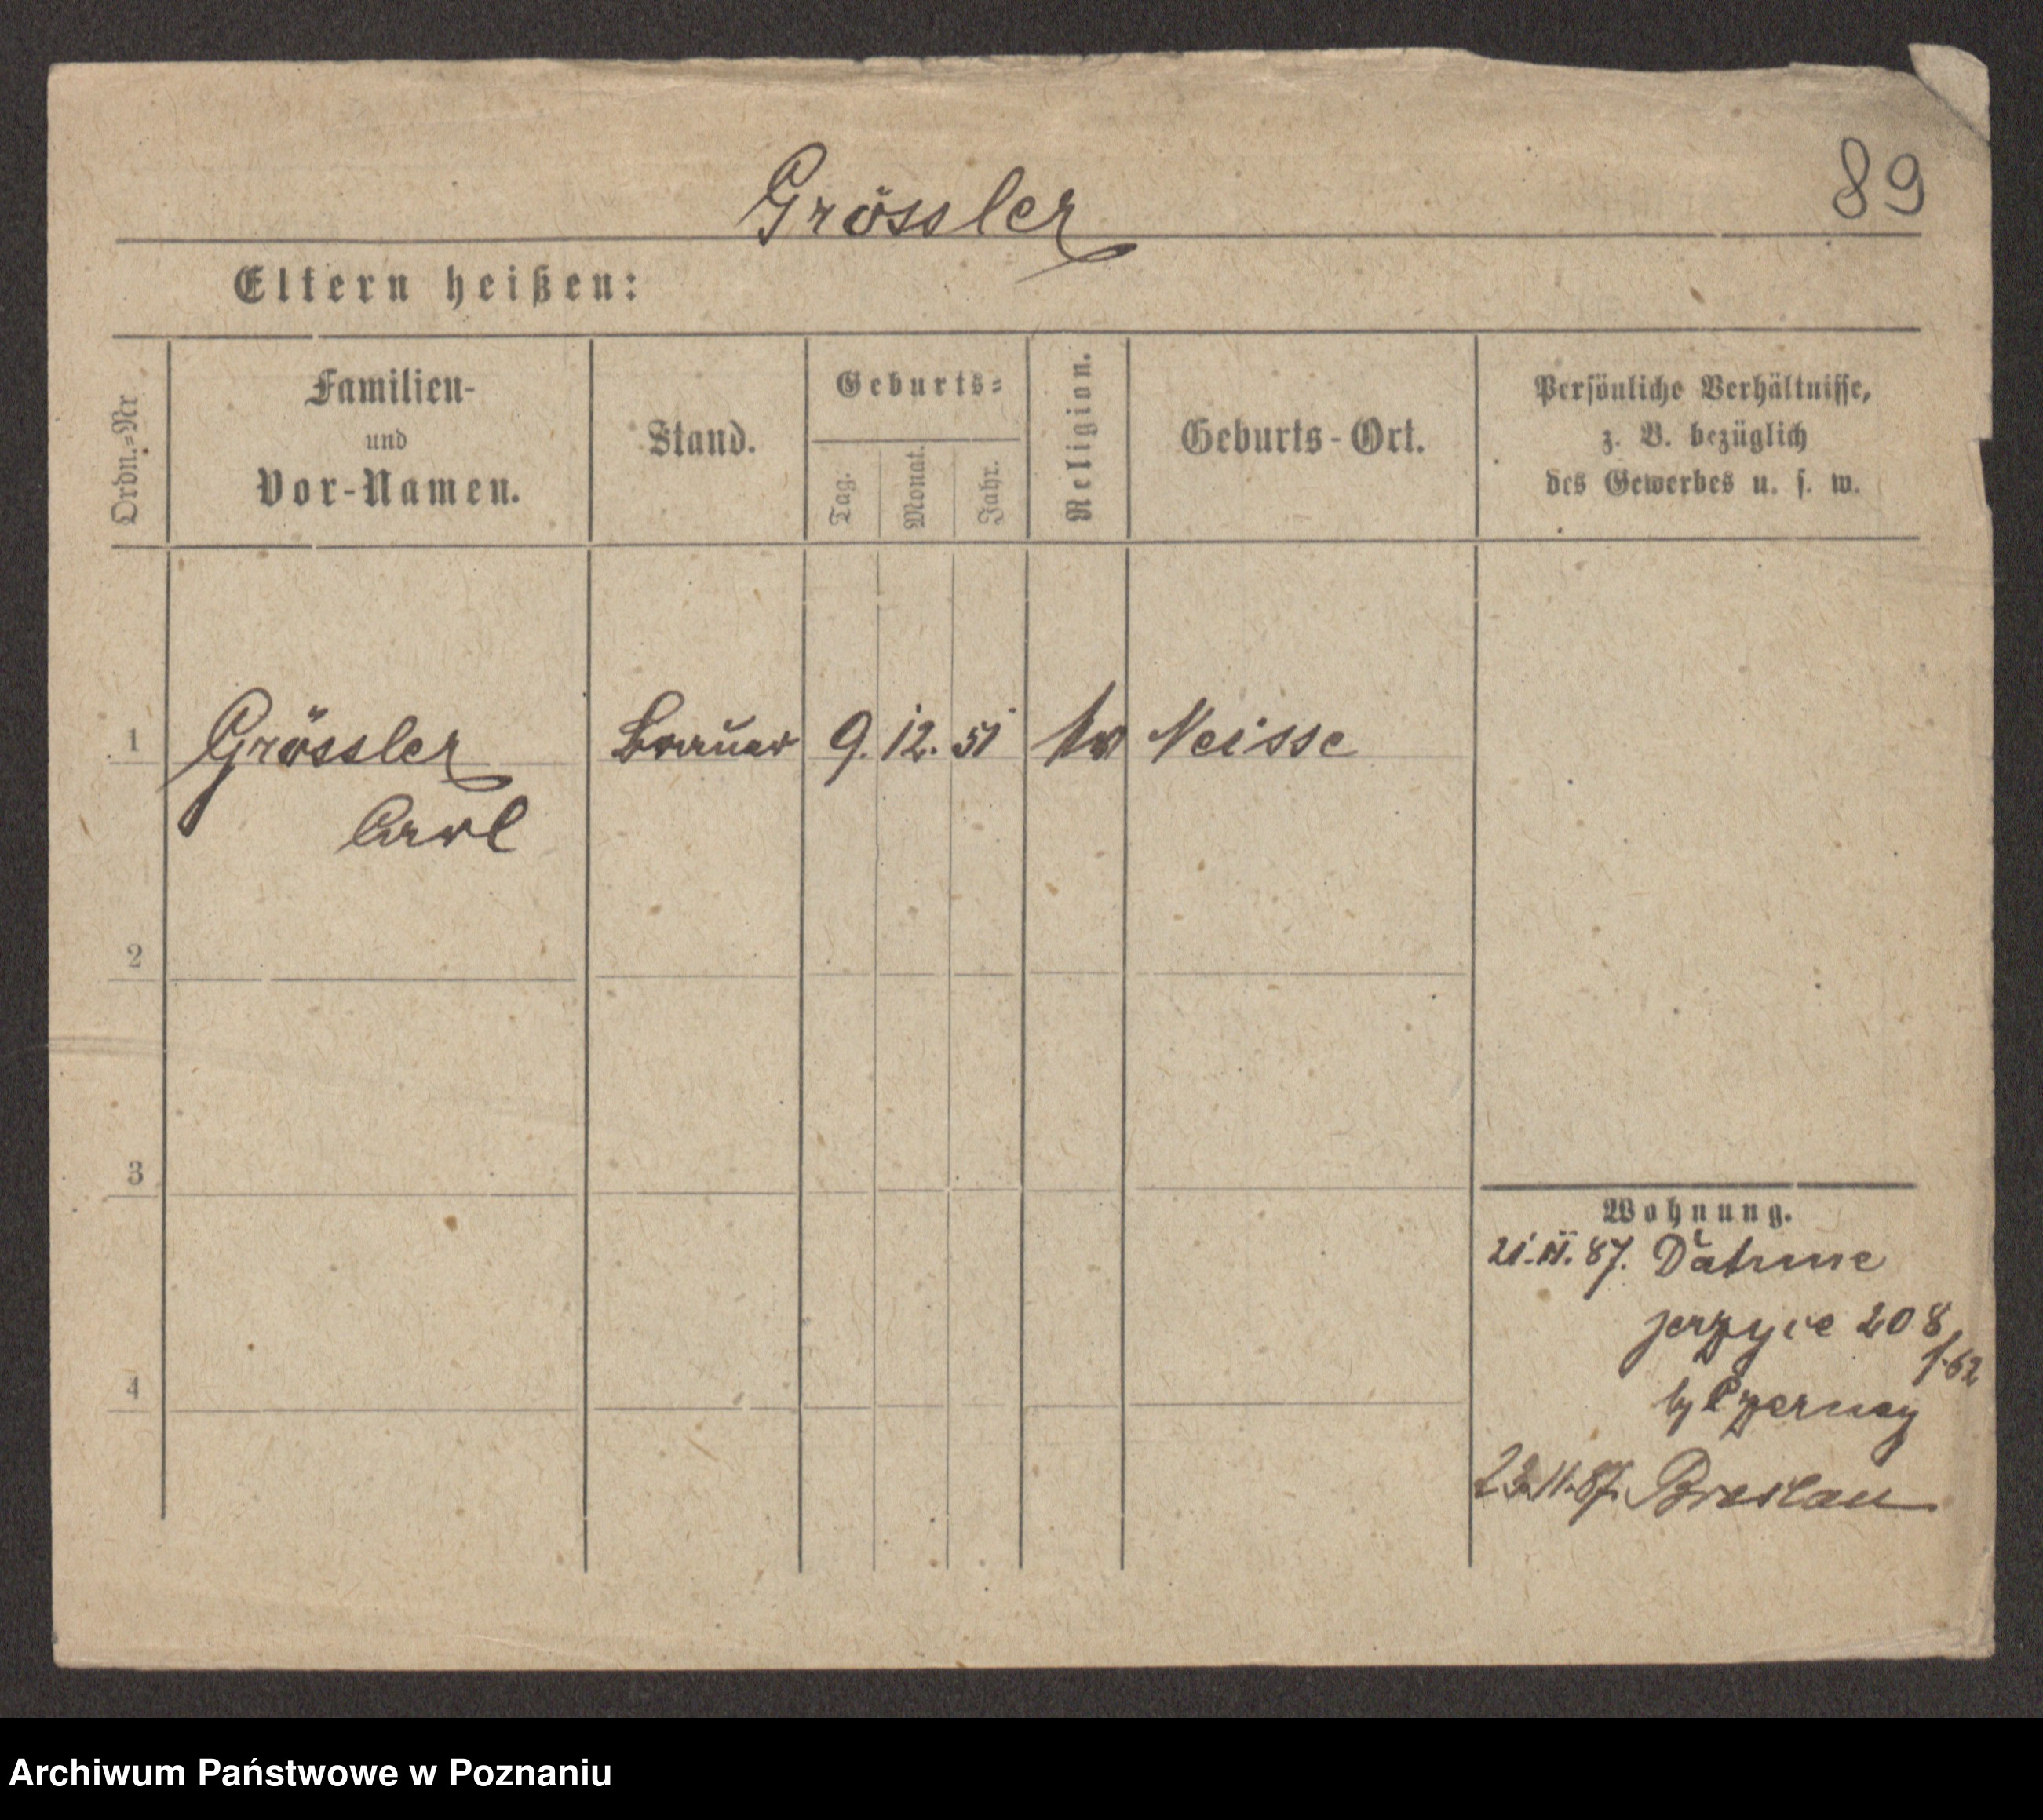 Grössler
89
Eltern heißen:
Ordn.=Nr
Familien-
und
Vor-Namen.
Stand.
Geburts=
Tag.
Monat.
Jahr.
Religion.
Geburts-Ort.
Persönliche Verhältnisse,
z. B. bezüglich
des Gewerbes u. s. w.
1 Grössler Brauer 9. 12. 51 Neisse
Carl
2
3
4
Wohnung.
21. 87.
208
23.11.87. Breslau
Archiwum Państwowe w Poznaniu